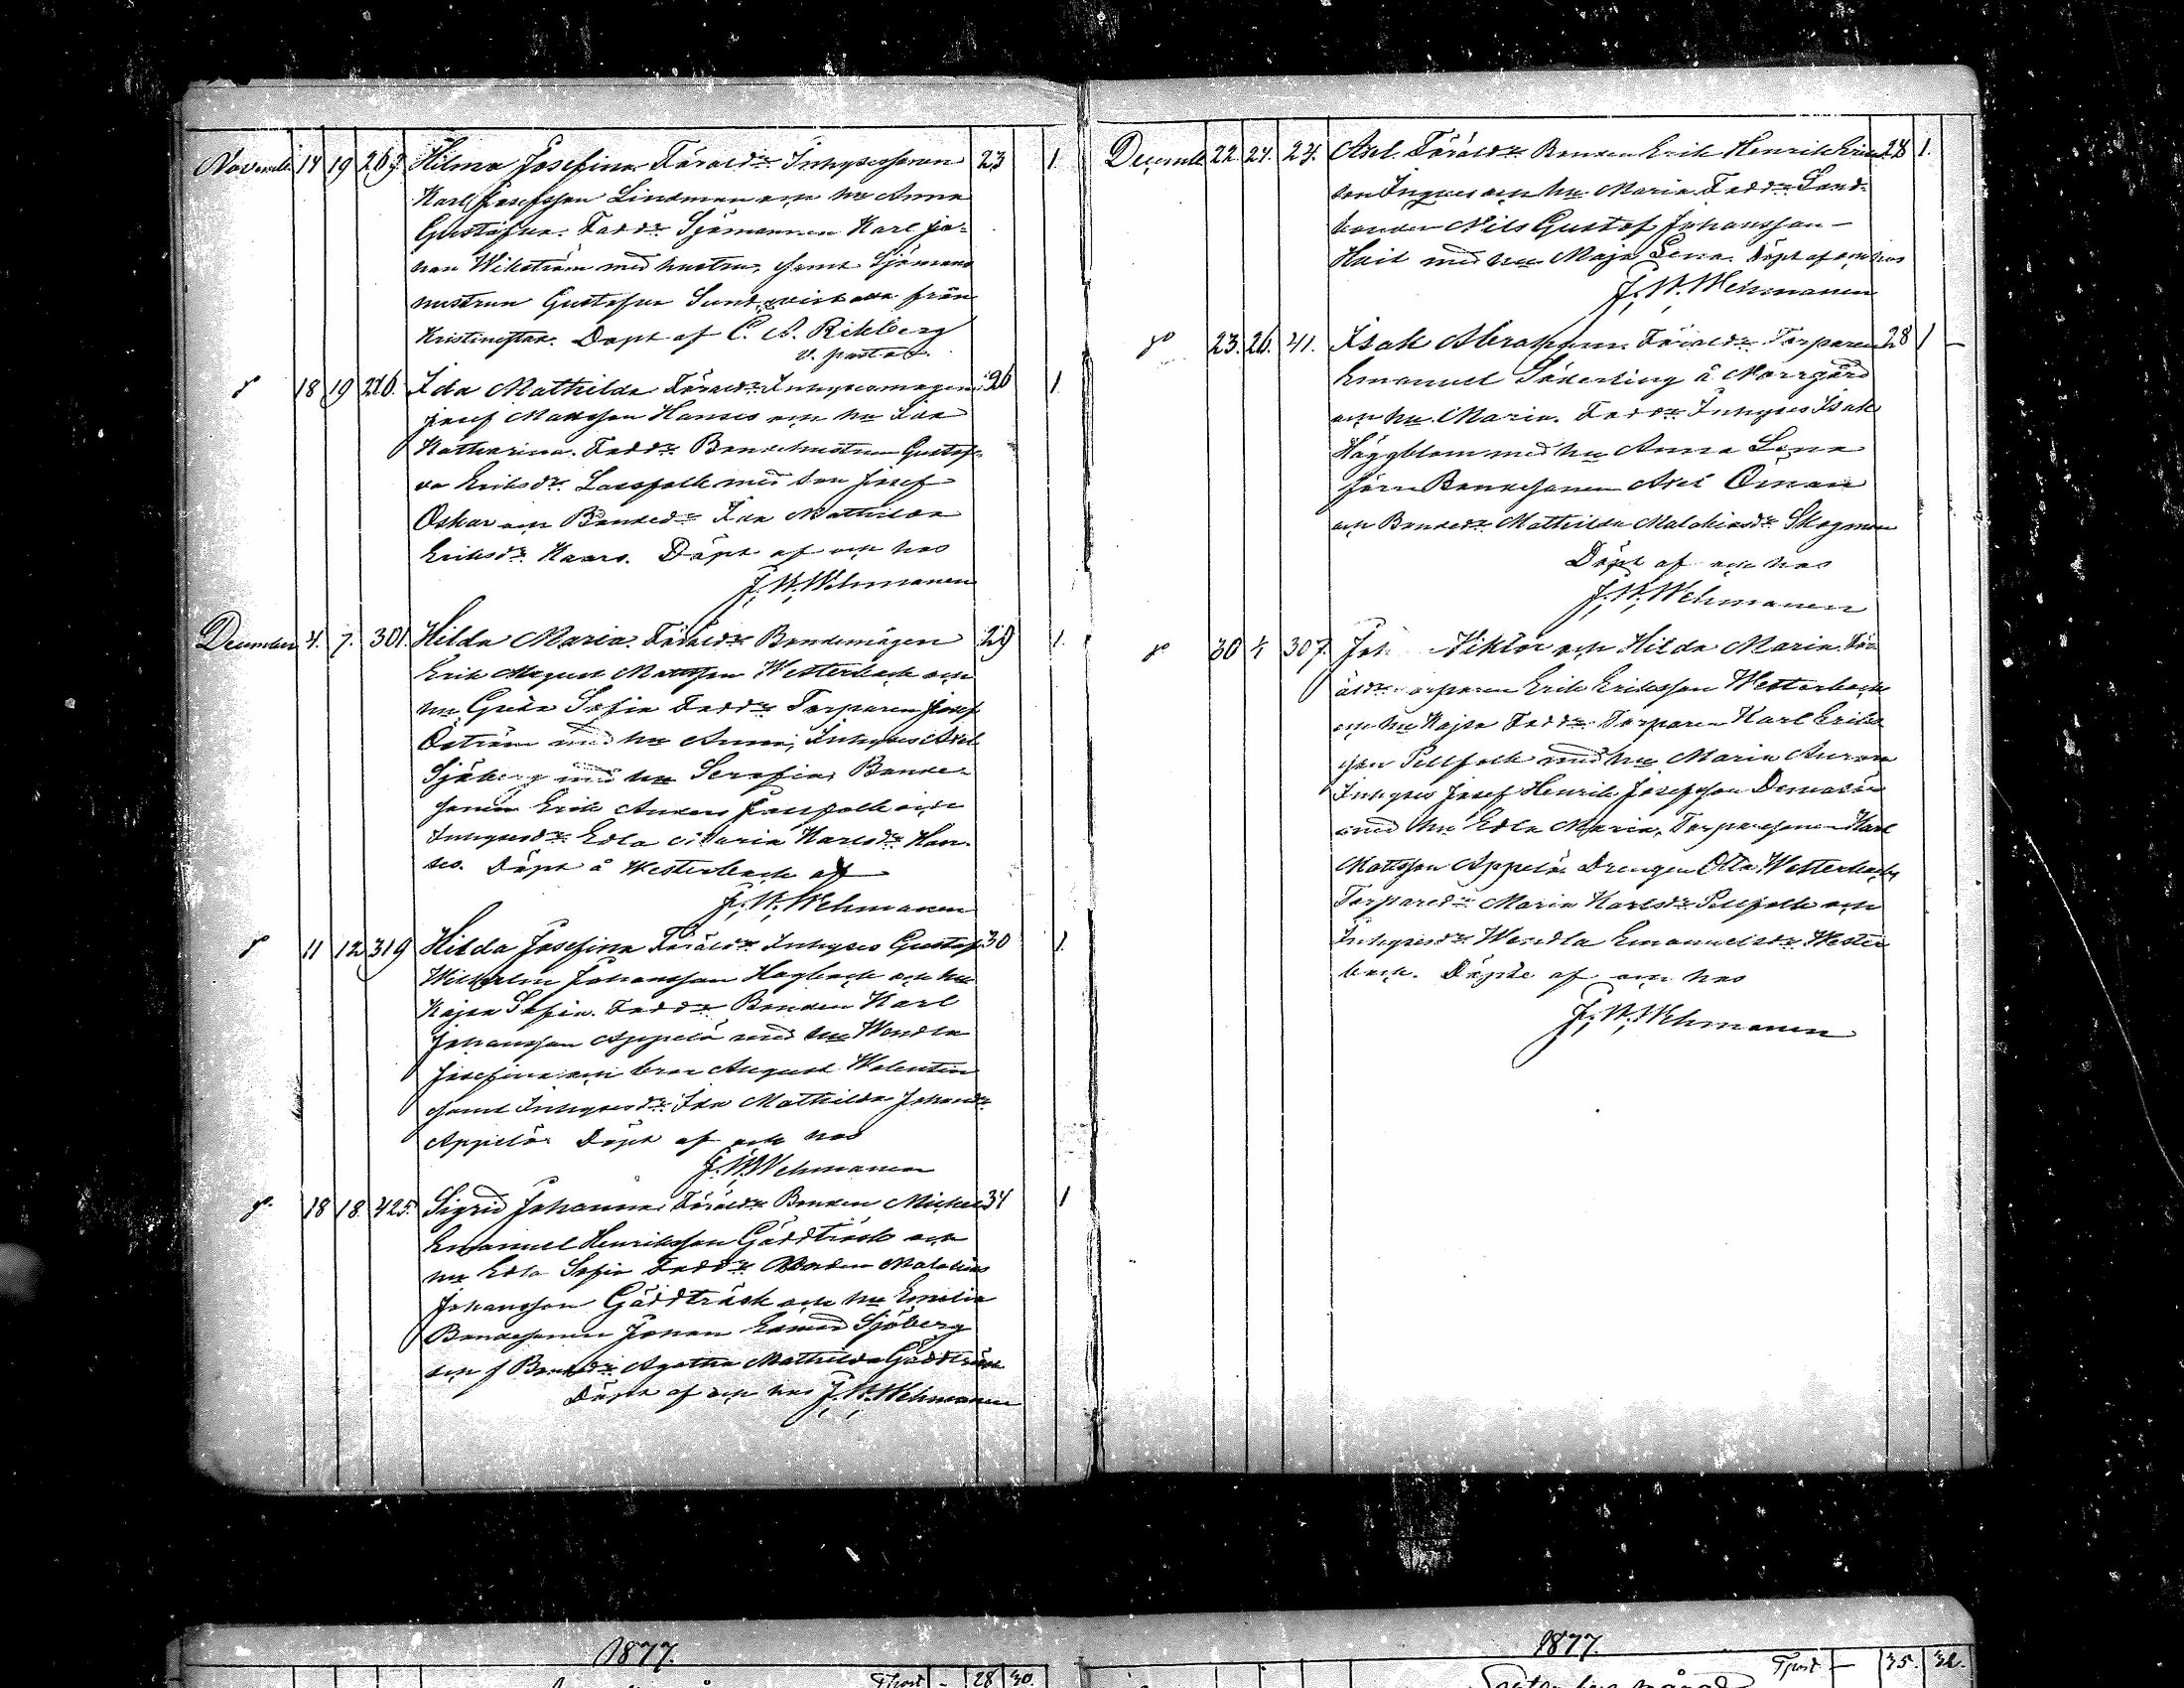 November 14 19 263. Hilma Josefina. Föräldr Inhysessonen 23 1
Karl Josefsson Lindman och hu Anna
Gustafva. Faddr Sjömannen Karl Jo-
han Wikström med hustru, samt Sjömans
hustrun Gustafva Sundqvist från
Kristinestad. Döpt af C. A. Rikberg
v. pastor.
d:o 18 19 226. Ida Mathilda Föräldr Inhysesmågen 26 1
Josef Mattsson Hanses och hu Ida
Katharina. Faddr Bondehustrun Gustaf-
va Eriksdr Lassfolk med son Josef
Oskar och Bondedr Ida Mathilda
Eriksdr Kaars. Döpt af och hos
J. W. Wehmanen
December 4. 7. 301. Hilda Maria. Föräldr Bondemågen 29 1
Erik August Mattsson Westerback och
hu Greta Sofia Faddr Torparen Josef
Öström med hu Anna, Inhyses Axel
Sjöberg med hu Serafia, Bonde-
sonen Erik Anders och
Inhysesdr Edla Maria Karlsdr Han-
ses. Döpt å Westerback af
J. W. Wehmanen
d:o 11 12 319 Hilda Josefina Föräldr Inhyses Gustaf 30 1
Wilhelm Johansson Hagback och hu
Kajsa Sofia. Faddr Bonden Karl
Johansson Appelö med hu Wendla
Josefina och bror August Walentin
samt Inhysesdr Ida Mathilda Johansdr
Appelö. Döpt af och hos
J. W. Wehmanen
d:o 18 18. 425. Sigrid Johanna. Föräldr Bonden Mickel 34 1
Emanuel Henriksson Gäddträsk och
hu Edla Sofia Faddr Bonden Malakias
Johansson Gäddträsk och hu Emelia
Bondesonen Johan Edvard Sjöberg
och Bondedr Agatha Mathilda Gäddträsk
Döpt af och hos J. W. Wehmanen
December 22. 24. 24. Axel. Föräldr Bonden Erik Henrik Eriks- 28 1.
son Ingves och hu Maria. Faddr Land-
bonden Nils Gustaf Johansson
med hu Maja Lena. Döpt af och hos
J. W. Wehmanen
d:o 23. 26. 41. Isak Abraham. Föräldr Torparen 28 1 –
Emanuel Söderling å Norrgård
och hu Maria. Faddr Inhyses Isak
Häggblom med hu Anna Lena
Bondesonen Axel Öman
och Bondedr Mathilda Malakiasdr Skogman
Döpt af och hos
J. W. Wehmanen
d:o 30 1/1 307. Joh Viktor och Hilda Maria. För-
äldr Torparen Erik Eriksson Westerback
och hu Kajsa Faddr Torparen Karl Eriks-
son Pellfolk med hu Maria
Inhyses Josef Henrik Josefsson
med hu Edla Maria, Torparesonen Karl
Mattsson Appelö. Drengen Otto Westerback,
Torparedr Maria Karlsdr Pellfolk och
Inhysesdr Wendla Emanuelsdr Wester-
back. Döpte af och hos
J. W. Wehmanen
1877.
28 30.
1877.
35. 32.
September månad